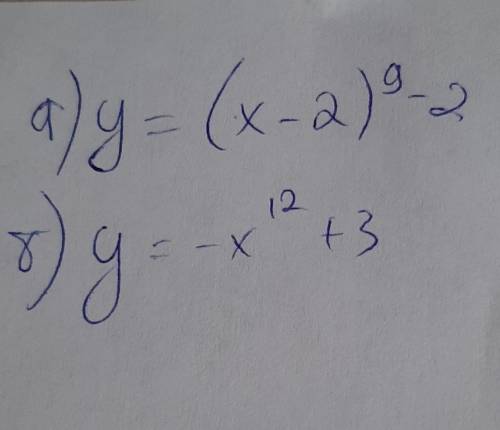 а) y = (x - 2)⁹ - 2
б) y = -x¹² + 3